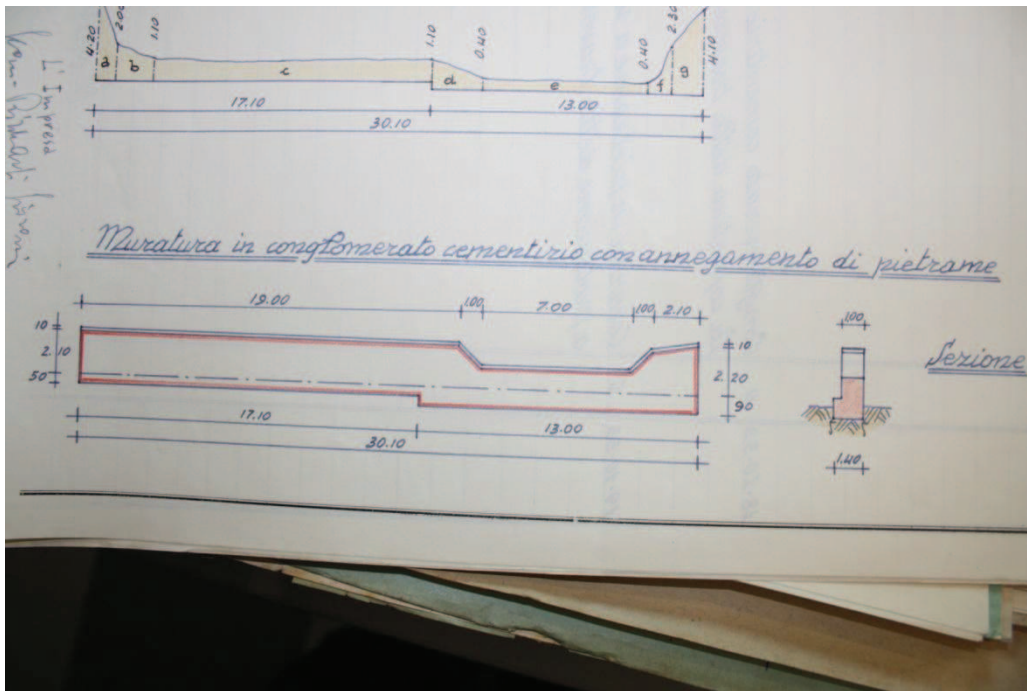 4.20 2.00 1.10 1.10 0.40 0.40 2.30 4.10
a b c d e f g
17.10 13.00
30.10
L'Impresa
Muratura in conglomerato cementizio con annegamento di pietrame
19.00 1.00 7.00 1.00 2.10
10
2.10
50
10
2.20
90
17.10 13.00
30.10
1.00
Sezione
1.40